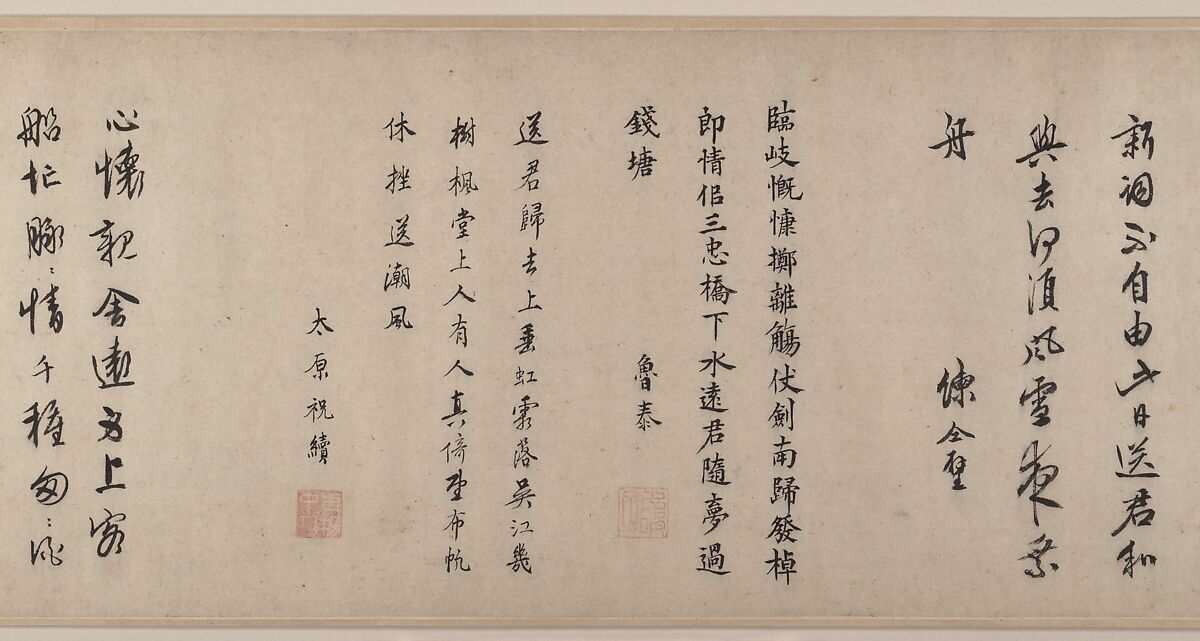 新詞不自由此日送君和
興去何須風雪夜乘
舟
陳全璧
臨岐慨慷擲離觴仗劍南歸發棹
郎情侶三忠橋下水遠君隨夢過
錢塘
魯泰
送君歸去上垂虹霧落吳江幾
樹楓堂上人有人真倚望布帆
休挫送潮風
太原祝續
心懷親舍遠為上客
船忙脉々情千種匆々